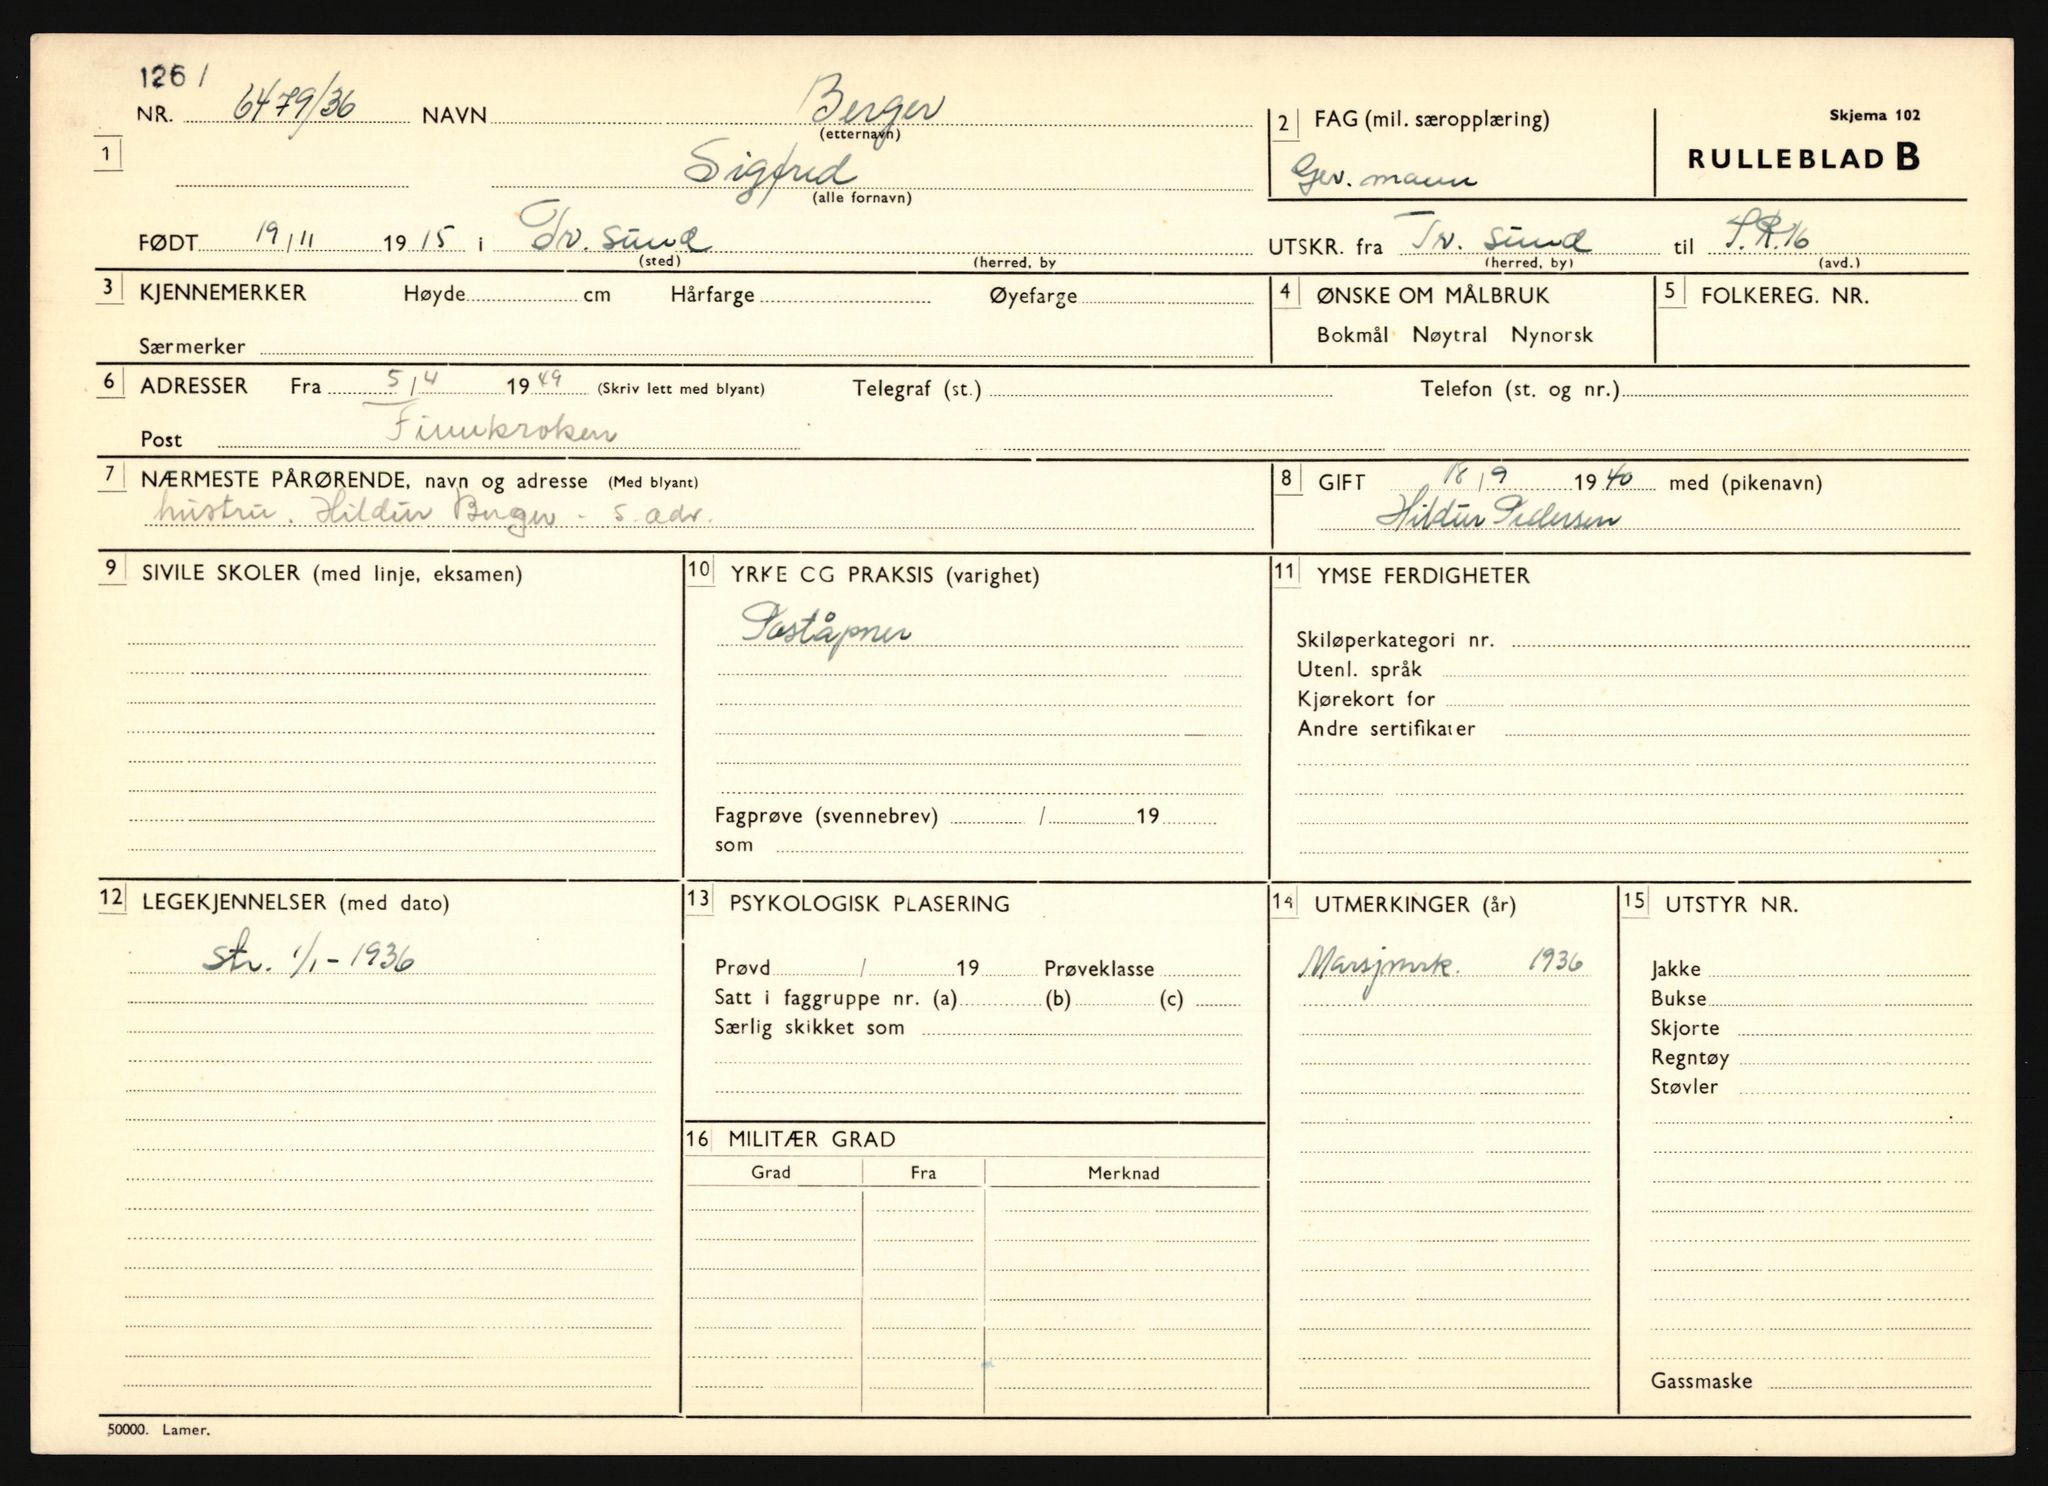 126 /
NR. 6479/36 NAVN Berger
(etternavn)
1 Sigfred
(alle fornavn)
2 FAG (mil. særopplæring)
Gev. mann
Skjema 102
RULLEBLAD B
FØDT 19/11 1915 i Tr. sund
(sted) (herred, by
UTSKR. fra Tr. sund til I.R.16
(herred, by) (avd.)
3 KJENNEMERKER Høyde cm Hårfarge Øyefarge
Særmerker
4 ØNSKE OM MÅLBRUK
Bokmål Nøytral Nynorsk
5 FOLKEREG. NR.
6 ADRESSER Fra 5/4 1949 (Skriv lett med blyant) Telegraf (st.) Telefon (st. og nr.)
Post Finnkroken
7 NÆRMESTE PÅRØRENDE, navn og adresse (Med blyant)
hustru. Hildur Berger - s. adr.
8 GIFT 18/9 1940 med (pikenavn)
Hildur Pedersen
9 SIVILE SKOLER (med linje, eksamen)
10 YRKE CG PRAKSIS (varighet)
Poståpner
Fagprøve (svennebrev) / 19
som
11 YMSE FERDIGHETER
Skiløperkategori nr.
Utenl. språk
Kjørekort for
Andre sertifikater
12 LEGEKJENNELSER (med dato)
str. 1/1 - 1936
13 PSYKOLOGISK PLASERING
Prøvd / 19 Prøveklasse
Satt i faggruppe nr. (a) (b) (c)
Særlig skikket som
14 UTMERKINGER (år)
Marsjmrk. 1936
15 UTSTYR NR.
Jakke
Bukse
Skjorte
Regntøy
Støvler
Gassmaske
16 MILITÆR GRAD
Grad Fra Merknad
50000. Lamer.